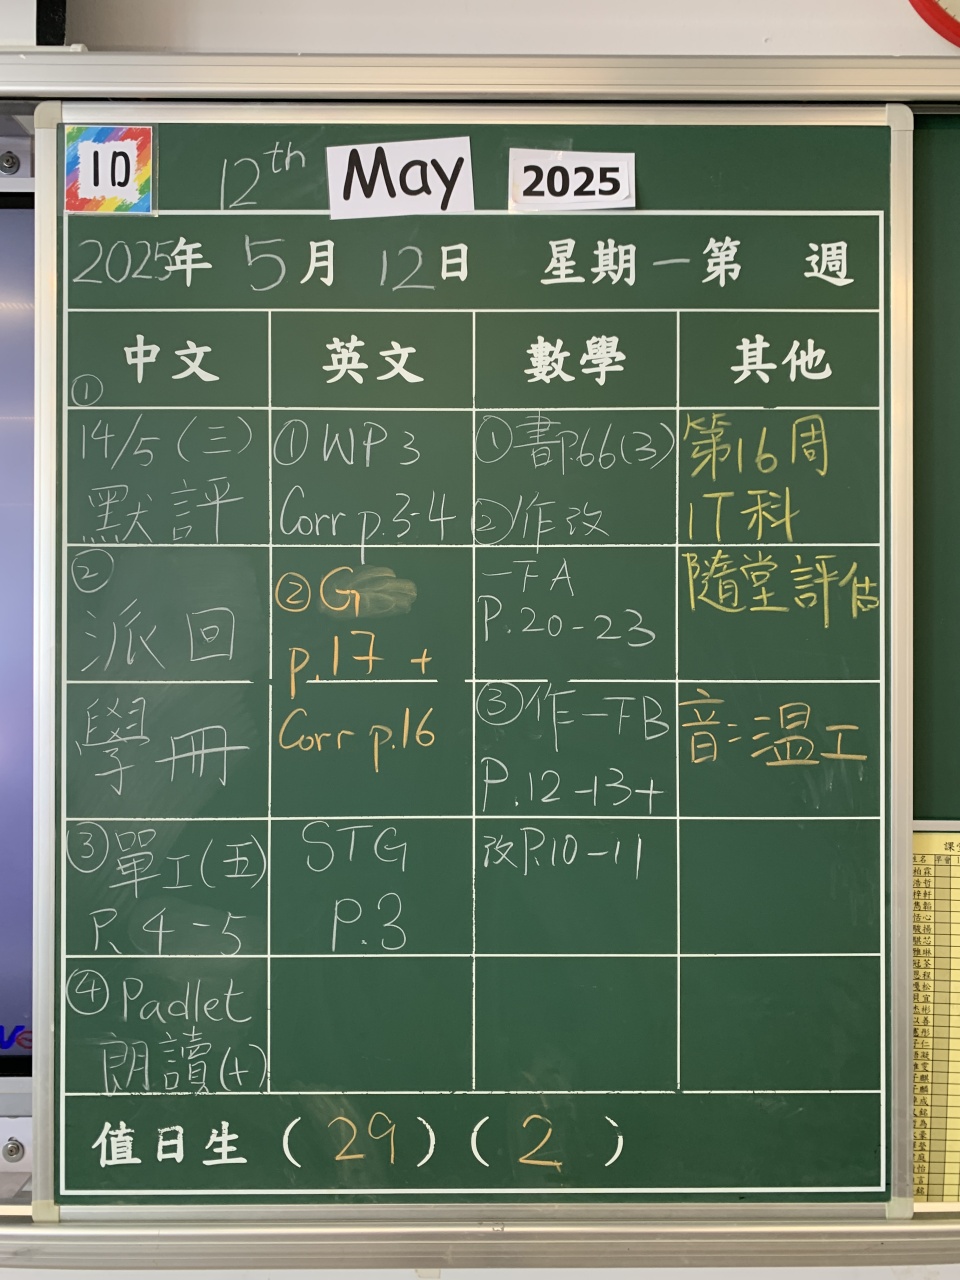 1D
12th May 2025
2025年 5月 12日 星期一 第 週
中文 英文 數學 其他
①
14/5 (三)
默評
②
派回
學冊
③ 單工(五)
P. 4-5
④ Padlet
朗讀(十)
① WP3
Corr p.3-4
② G
p.17 +
Corr p.16
STG
P.3
① 書P.66(3)
② 作改
一下A
P.20-23
③ 作一下B
P.12-13+
改P.10-11
第16周
IT科
隨堂評估
音:溫工
值日生 (29)(2)